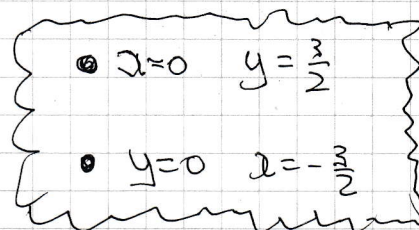 • x=0 y = 3/2
• y=0 x = -3/2